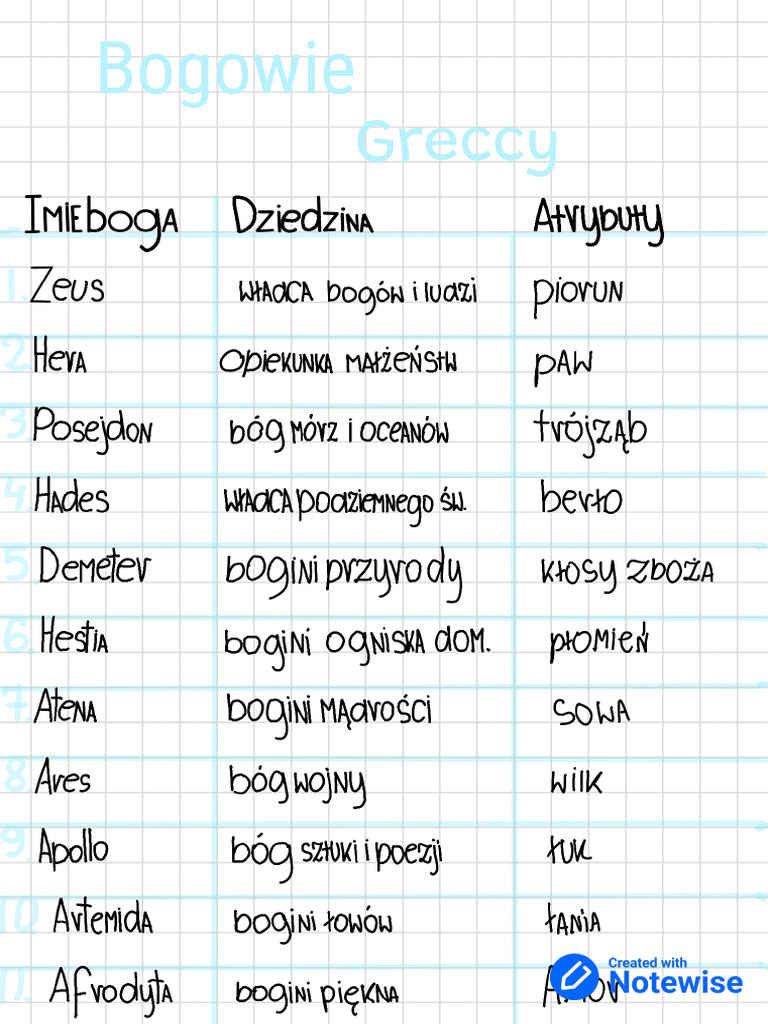 Bogowie
Greccy
Imię boga Dziedzina Atrybuty
1. Zeus władca bogów i ludzi piorun
2. Hera opiekunka małżeństw paw
3. Posejdon bóg mórz i oceanów trójząb
4. Hades władca podziemnego św. berło
5. Demeter bogini przyrody kłosy zboża
6. Hestia bogini ogniska dom. płomień
7. Atena bogini mądrości sowa
8. Ares bóg wojny wilk
9. Apollo bóg sztuki i poezji łuk
10. Artemida bogini łowów łania
11. Afrodyta bogini piękna
Created with
Notewise